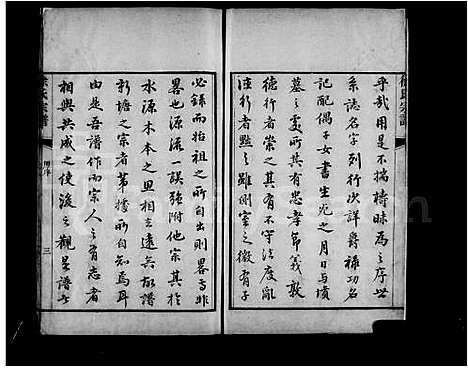 乎哉用是不揣梼昧為之序世
系誌名字列行次詳爵祿功名
記配偶子女書生死之月日与墳
墓之處所其有忠孝節義敦
德行者崇之其有不守法度亂
淫行者黜之雖側室之微有子
必録而始祖之所自出則畧焉非
畧也源流一誤强附他宗其於
水源木本之思相去遠矣故譜
新塘之宗者第據所自知為耳
由是吾譜作而宗人之有志者
相與共成之使後之觀是譜者
徐氏宗譜
三